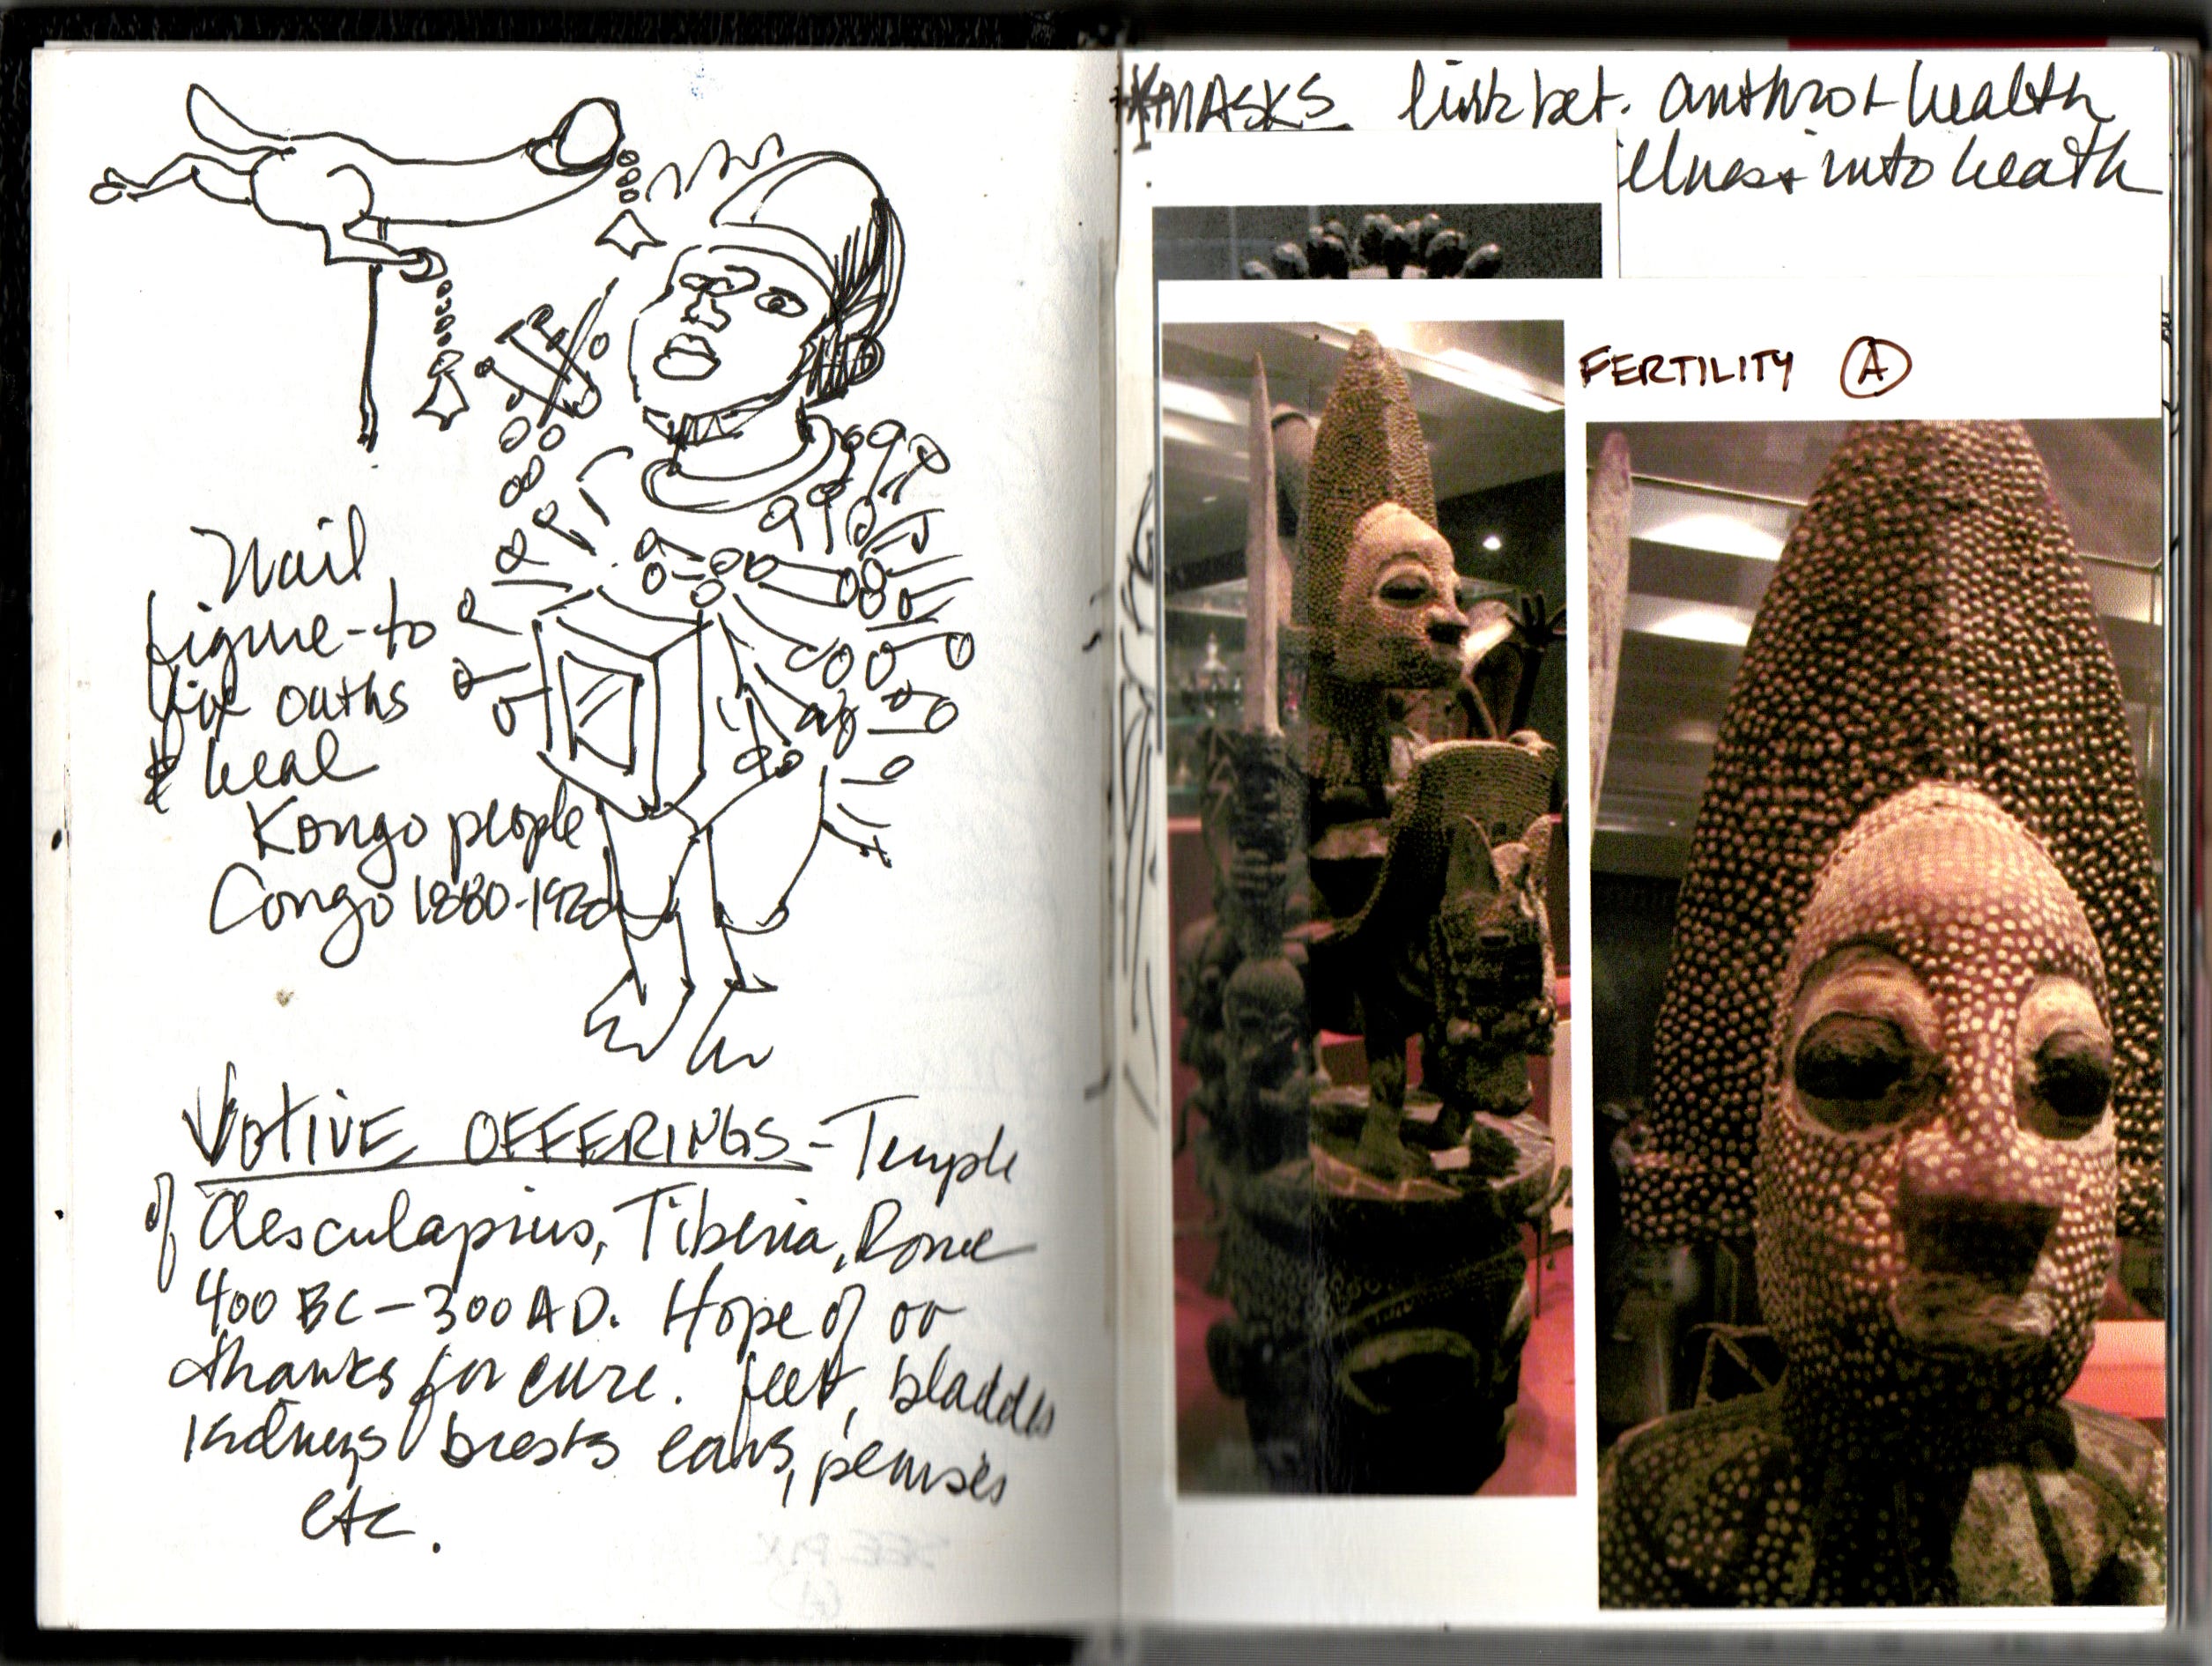 Nail
figure-to
fix oaths
& heal
Kongo people
Congo 1880-1920
VOTIVE OFFERINGS - Temple
of Aesculapius, Tiberia, Rome
400 BC - 300 AD. Hope of or
thanks for cure. feet, bladders
kidneys brests ears, penises
etc.
*MASKS link bet. anthro + health
illness + into heath
FERTILITY A